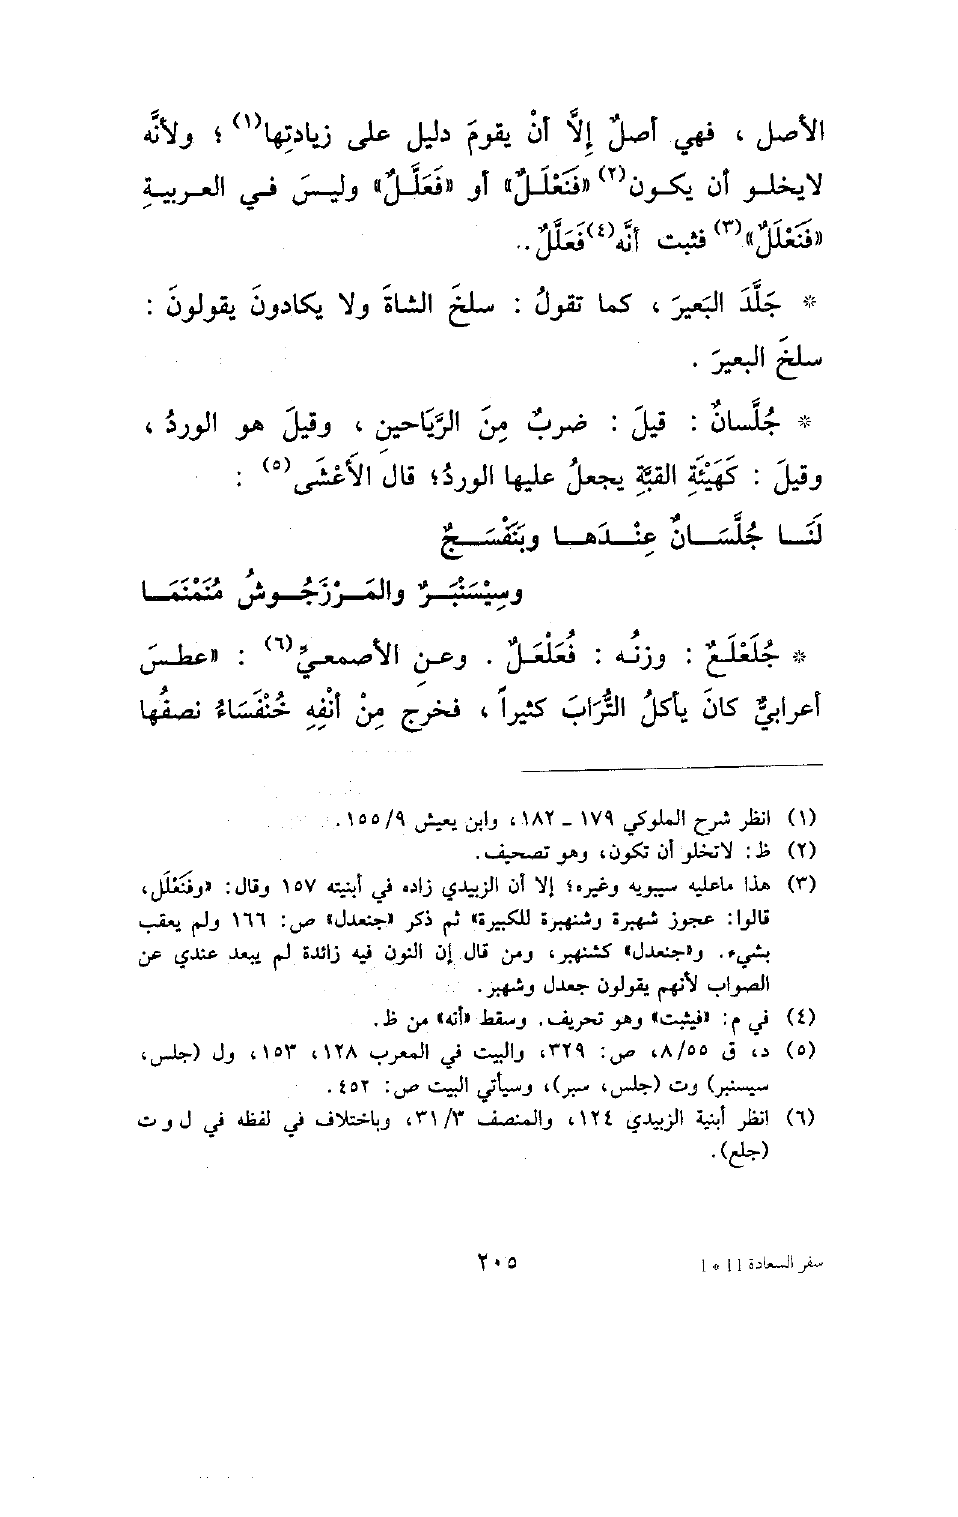 الأصل ، فهي أصلٌ إِلاَّ أنْ يقومَ دليل على زيادتِها(١) ؛ ولأنَّه
لايخلو أن يكون(٢) «فَنَعْلَلٌ» أو «فَعَلَّلٌ» وليسَ في العربيةِ
«فَنَعْلَلٌ»(٣) فثبت أنَّه(٤) فَعَلَّلٌ ..
* جَلَّدَ البَعيرَ ، كما تقولُ : سلخَ الشاةَ ولا يكادونَ يقولونَ :
سلخَ البعيرَ .
* جُلَّسانٌ : قيلَ : ضربٌ مِنَ الرَّيَاحينِ ، وقيلَ هو الوردُ ،
وقيلَ : كَهَيْئَةِ القبَّةِ يجعلُ عليها الوردُ؛ قال الأَعْشَى(٥) :
لَنَا جُلَّسَانٌ عِنْدَهَا وبَنَفْسَجٌ
وسِيْسَنْبَرٌ والمَرْزَجُوشُ مُنَمْنَمَا
* جُلَعْلَعٌ : وزنُه : فُعَلْعَلٌ . وعن الأصمعيِّ(٦) : «عطسَ
أعرابيٌّ كانَ يأكلُ التُّرَابَ كثيراً ، فخرج مِنْ أنْفِهِ خُنْفَسَاءُ نصفُها
(١) انظر شرح الملوكي ١٧٩ - ١٨٢، وابن يعيش ١٥٥/٩.
(٢) ظ: لاتخلو أن تكون، وهو تصحيف.
(٣) هذا ماعليه سيبويه وغيره؛ إلا أن الزبيدي زاده في أبنيته ١٥٧ وقال: «وفَنَعْلَل،
قالوا: عجوز شهبرة وشنهبرة للكبيرة» ثم ذكر «جنعدل» ص: ١٦٦ ولم يعقب
بشيء. و«جنعدل» كشنهبر، ومن قال إن النون فيه زائدة لم يبعد عندي عن
الصواب لأنهم يقولون جعدل وشهبر.
(٤) في م: «فيثبت» وهو تحريف. وسقط «أنه» من ظ.
(٥) د، ق ٨/٥٥، ص: ٣٢٩، والبيت في المعرب ١٢٨، ١٥٣، ول (جلس،
سيسنبر) وت (جلس، سبر)، وسيأتي البيت ص: ٤٥٢.
(٦) انظر أبنية الزبيدي ١٢٤، والمنصف ٣١/٣، وباختلاف في لفظه في ل وت
(جلع).
سفر السعادة ١١ * ١
٢٠٥